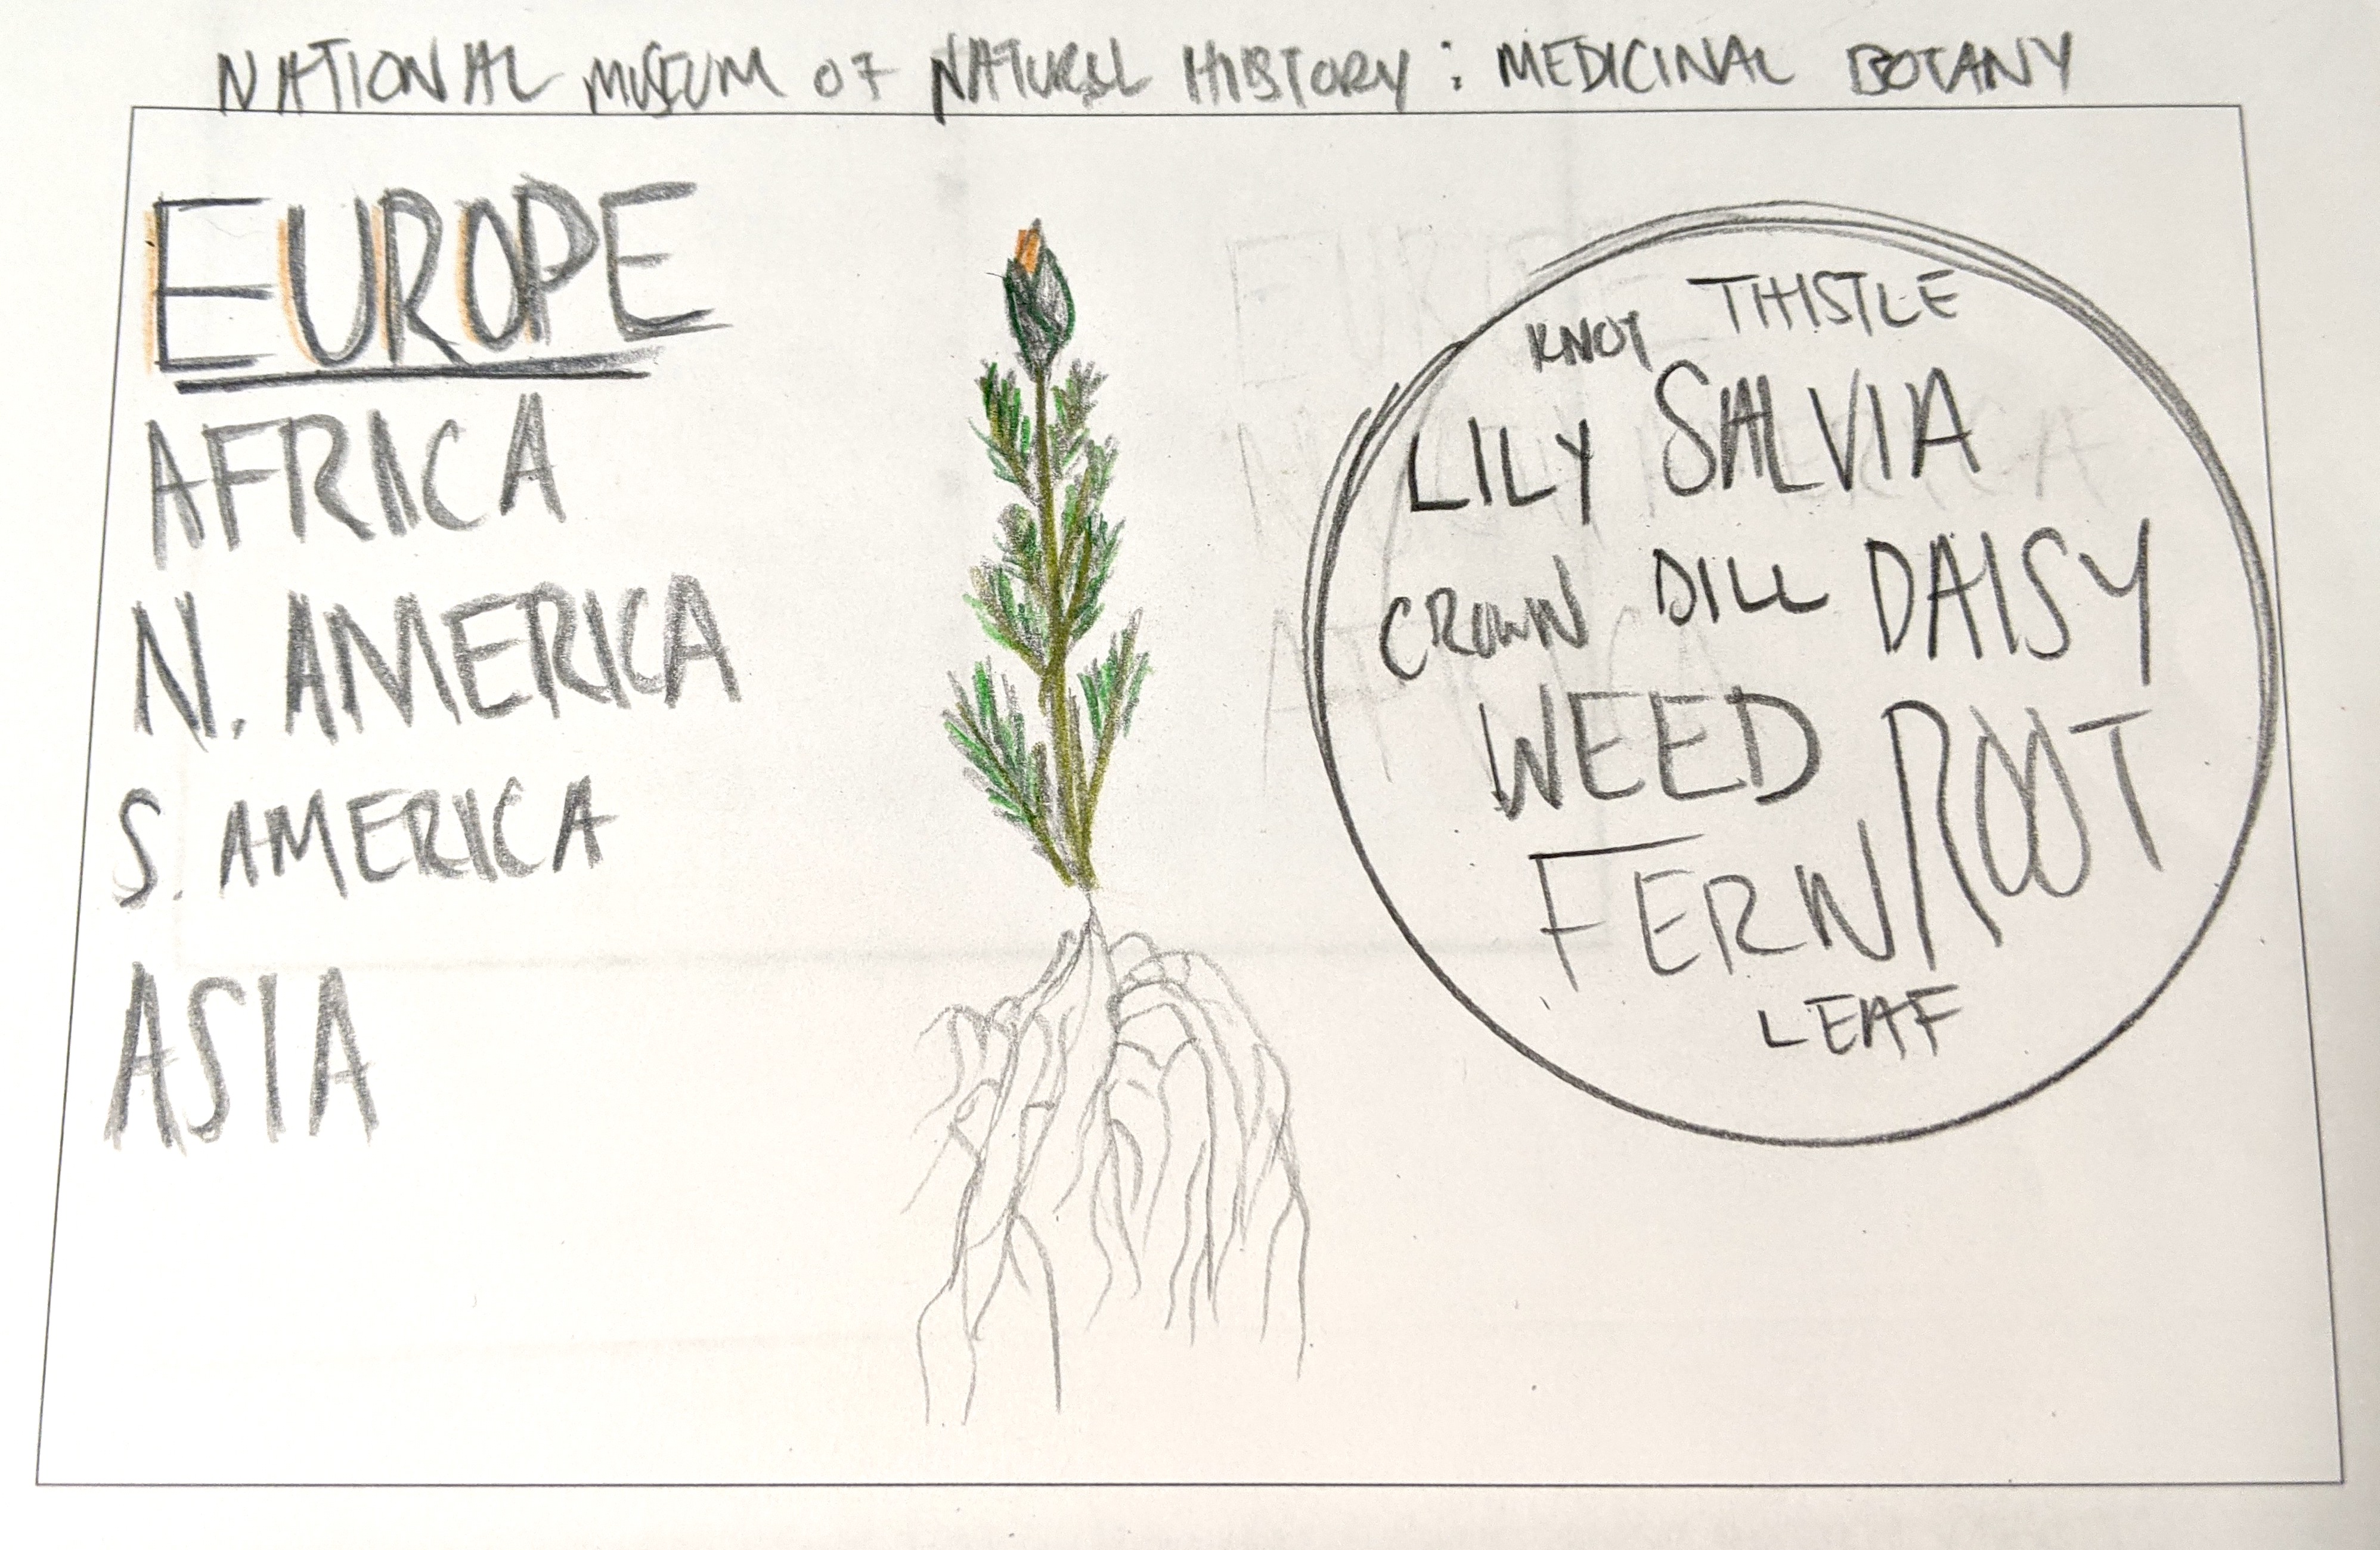 NATIONAL MUSEUM OF NATURAL HISTORY: MEDICINAL BOTANY
EUROPE
AFRICA
N. AMERICA
S. AMERICA
ASIA
KNOT THISTLE
LILY SALVIA
CROWN DILL DAISY
WEED ROOT
FERN
LEAF